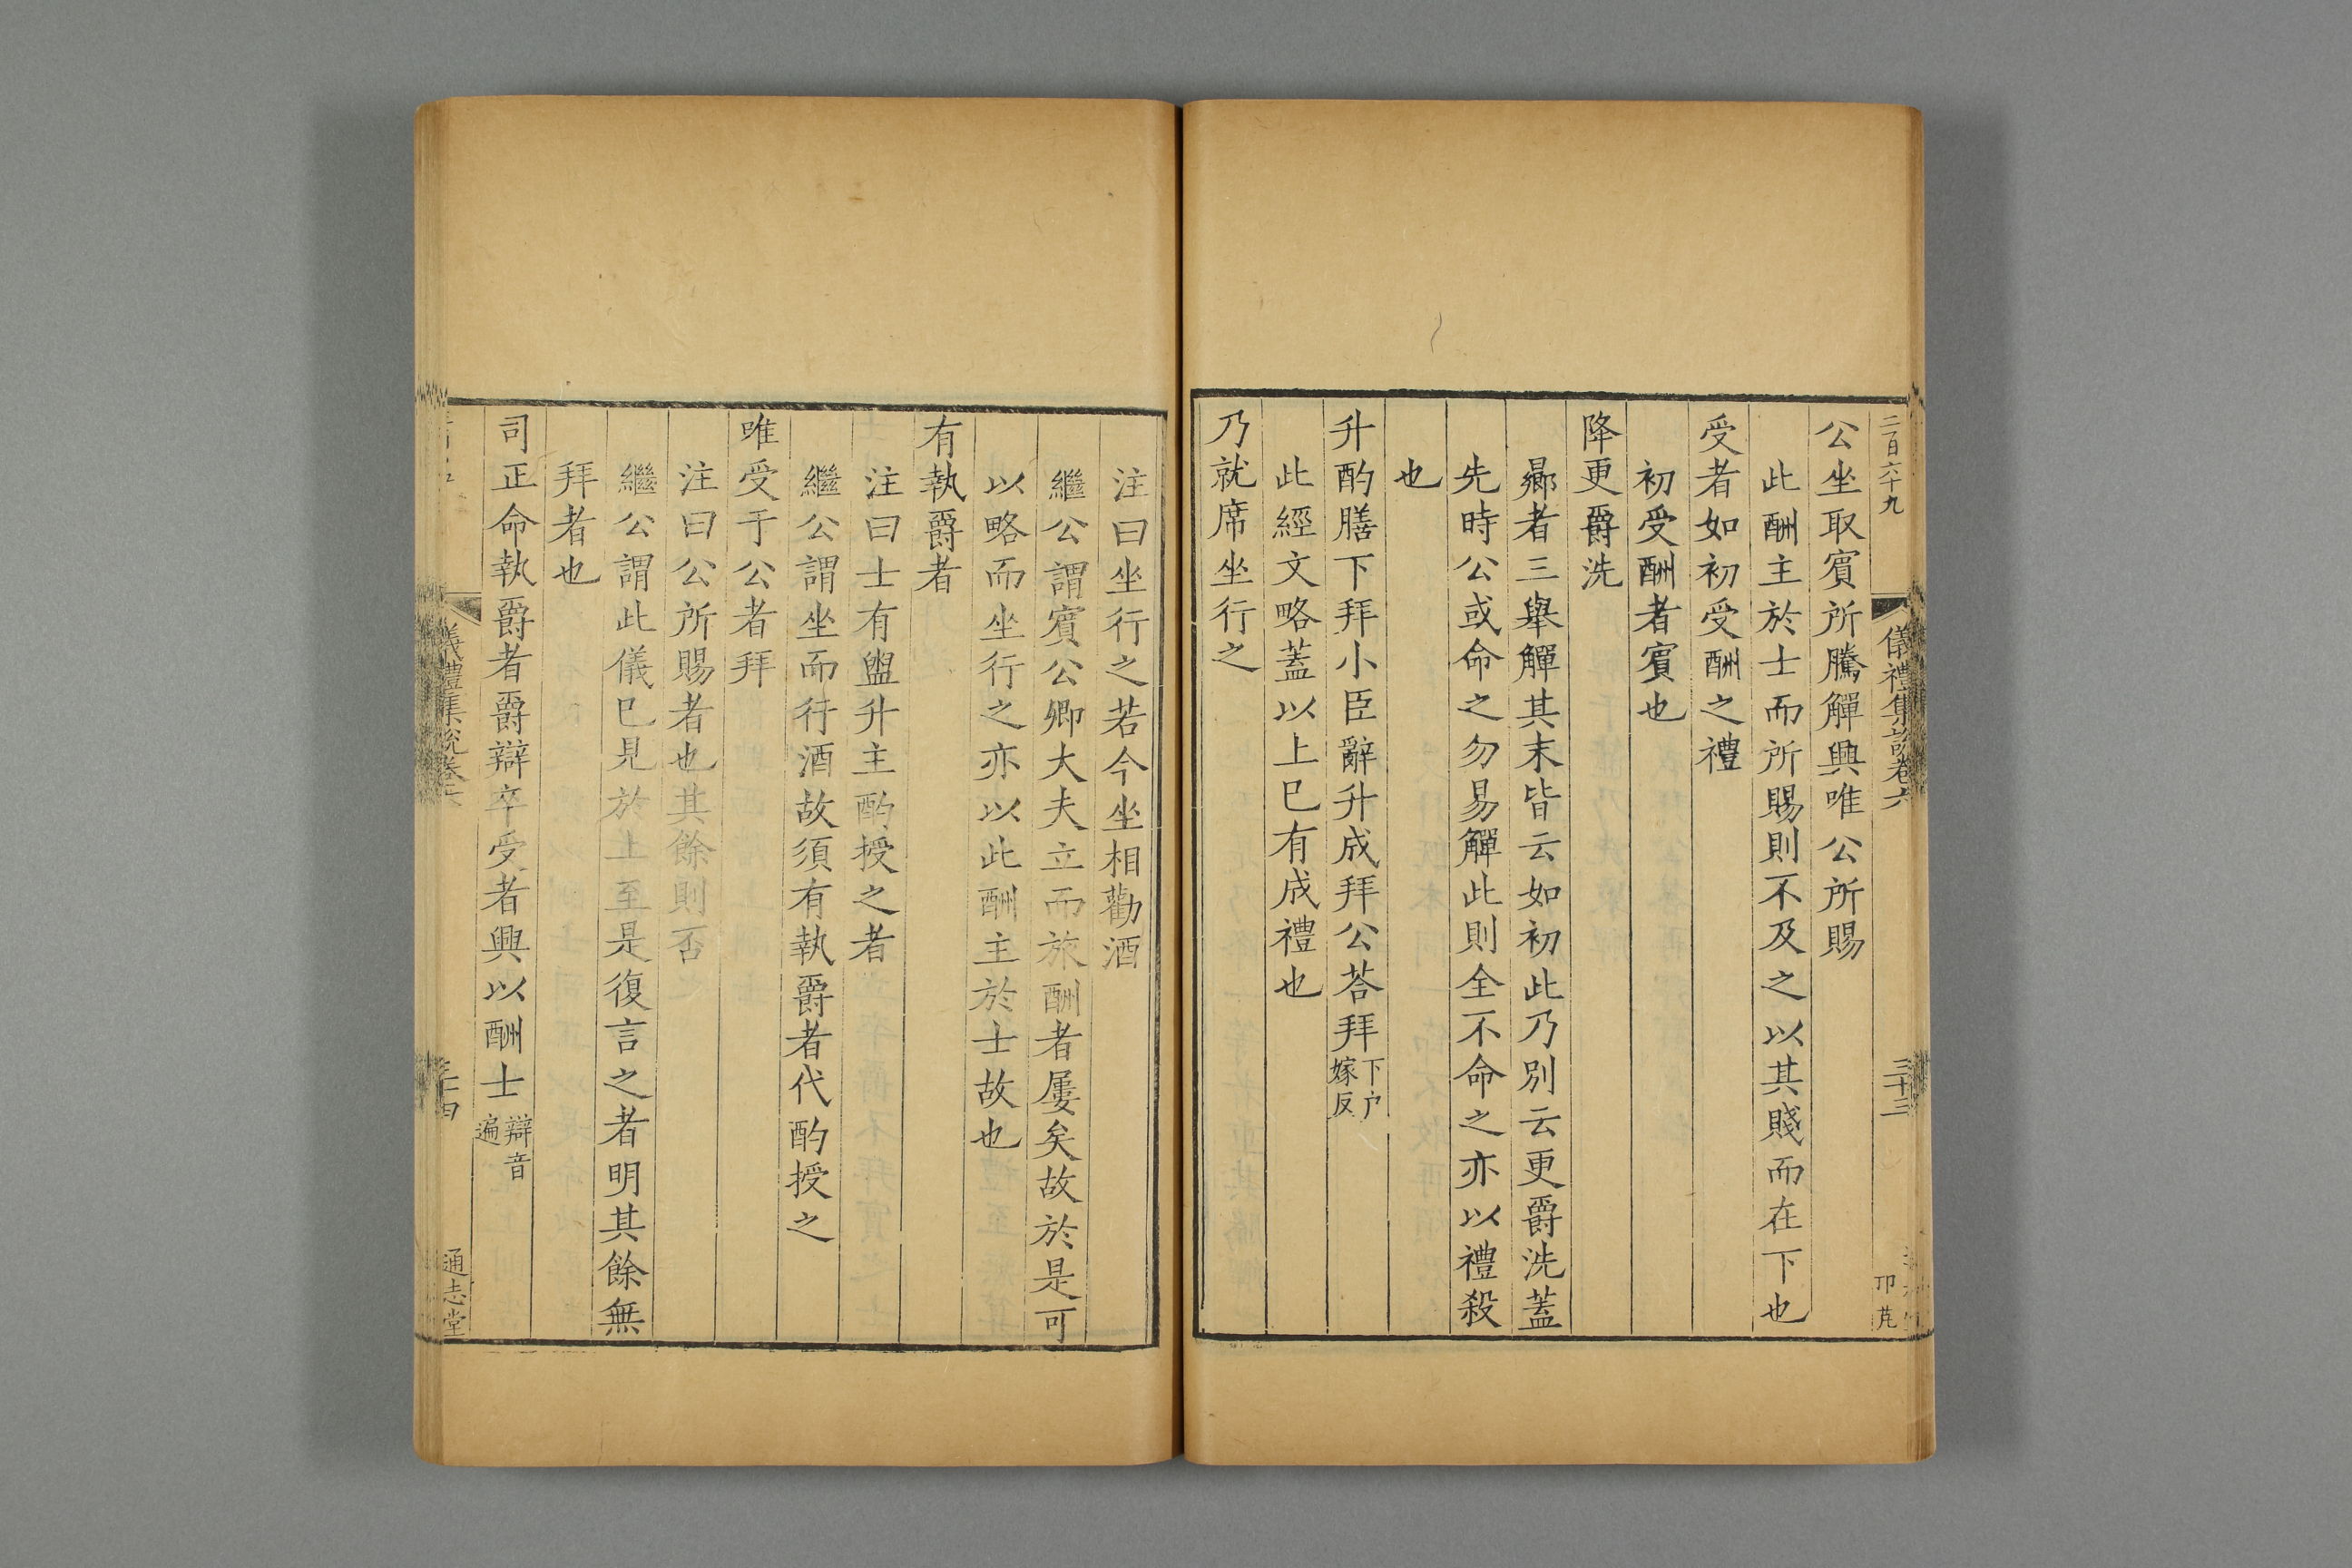 二百六十九
儀禮集說卷六
三十三
公坐取賔所騰觶興唯公所賜
此酬主於士而所賜則不及之以其賤而在下也
受者如初受酬之禮
初受酬者賔也
降更爵洗
曏者三舉觶其末皆云如初此乃別云更爵洗蓋
先時公或命之勿易觶此則全不命之亦以禮殺
也
升酌膳下拜小臣辭升成拜公荅拜下户嫁反
此經文略蓋以上已有成禮也
乃就席坐行之
注曰坐行之若今坐相勸酒
繼公謂賔公卿大夫立而旅酬者屢矣故於是可
以略而坐行之亦以此酬主於士故也
有執爵者
注曰士有盥升主酌授之者
繼公謂坐而行酒故須有執爵者代酌授之
唯受于公者拜
注曰公所賜者也其餘則否
繼公謂此儀已見於上至是復言之者明其餘無
拜者也
司正命執爵者爵辯卒受者興以酬士辯音遍
儀禮集說卷六
通志堂